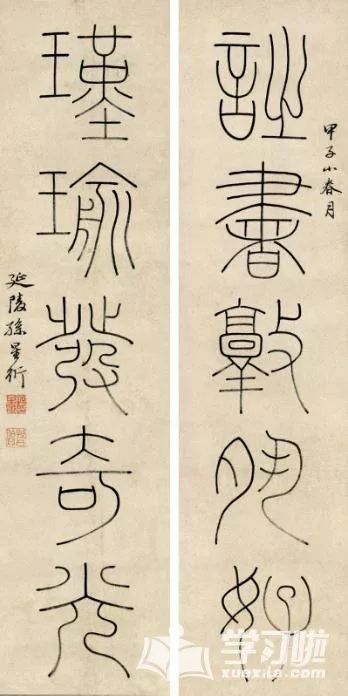 甲子小春月
詩書敦夙好
瑾瑜發奇光
延陵孫星衍
学习啦
xuexila.com